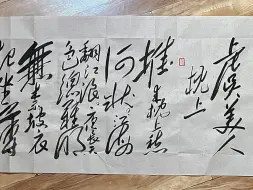 虞美人
枕上
堆来枕上愁
何状江海
翻波浪夜长天
色怎難明
無奈披衣
起坐薄